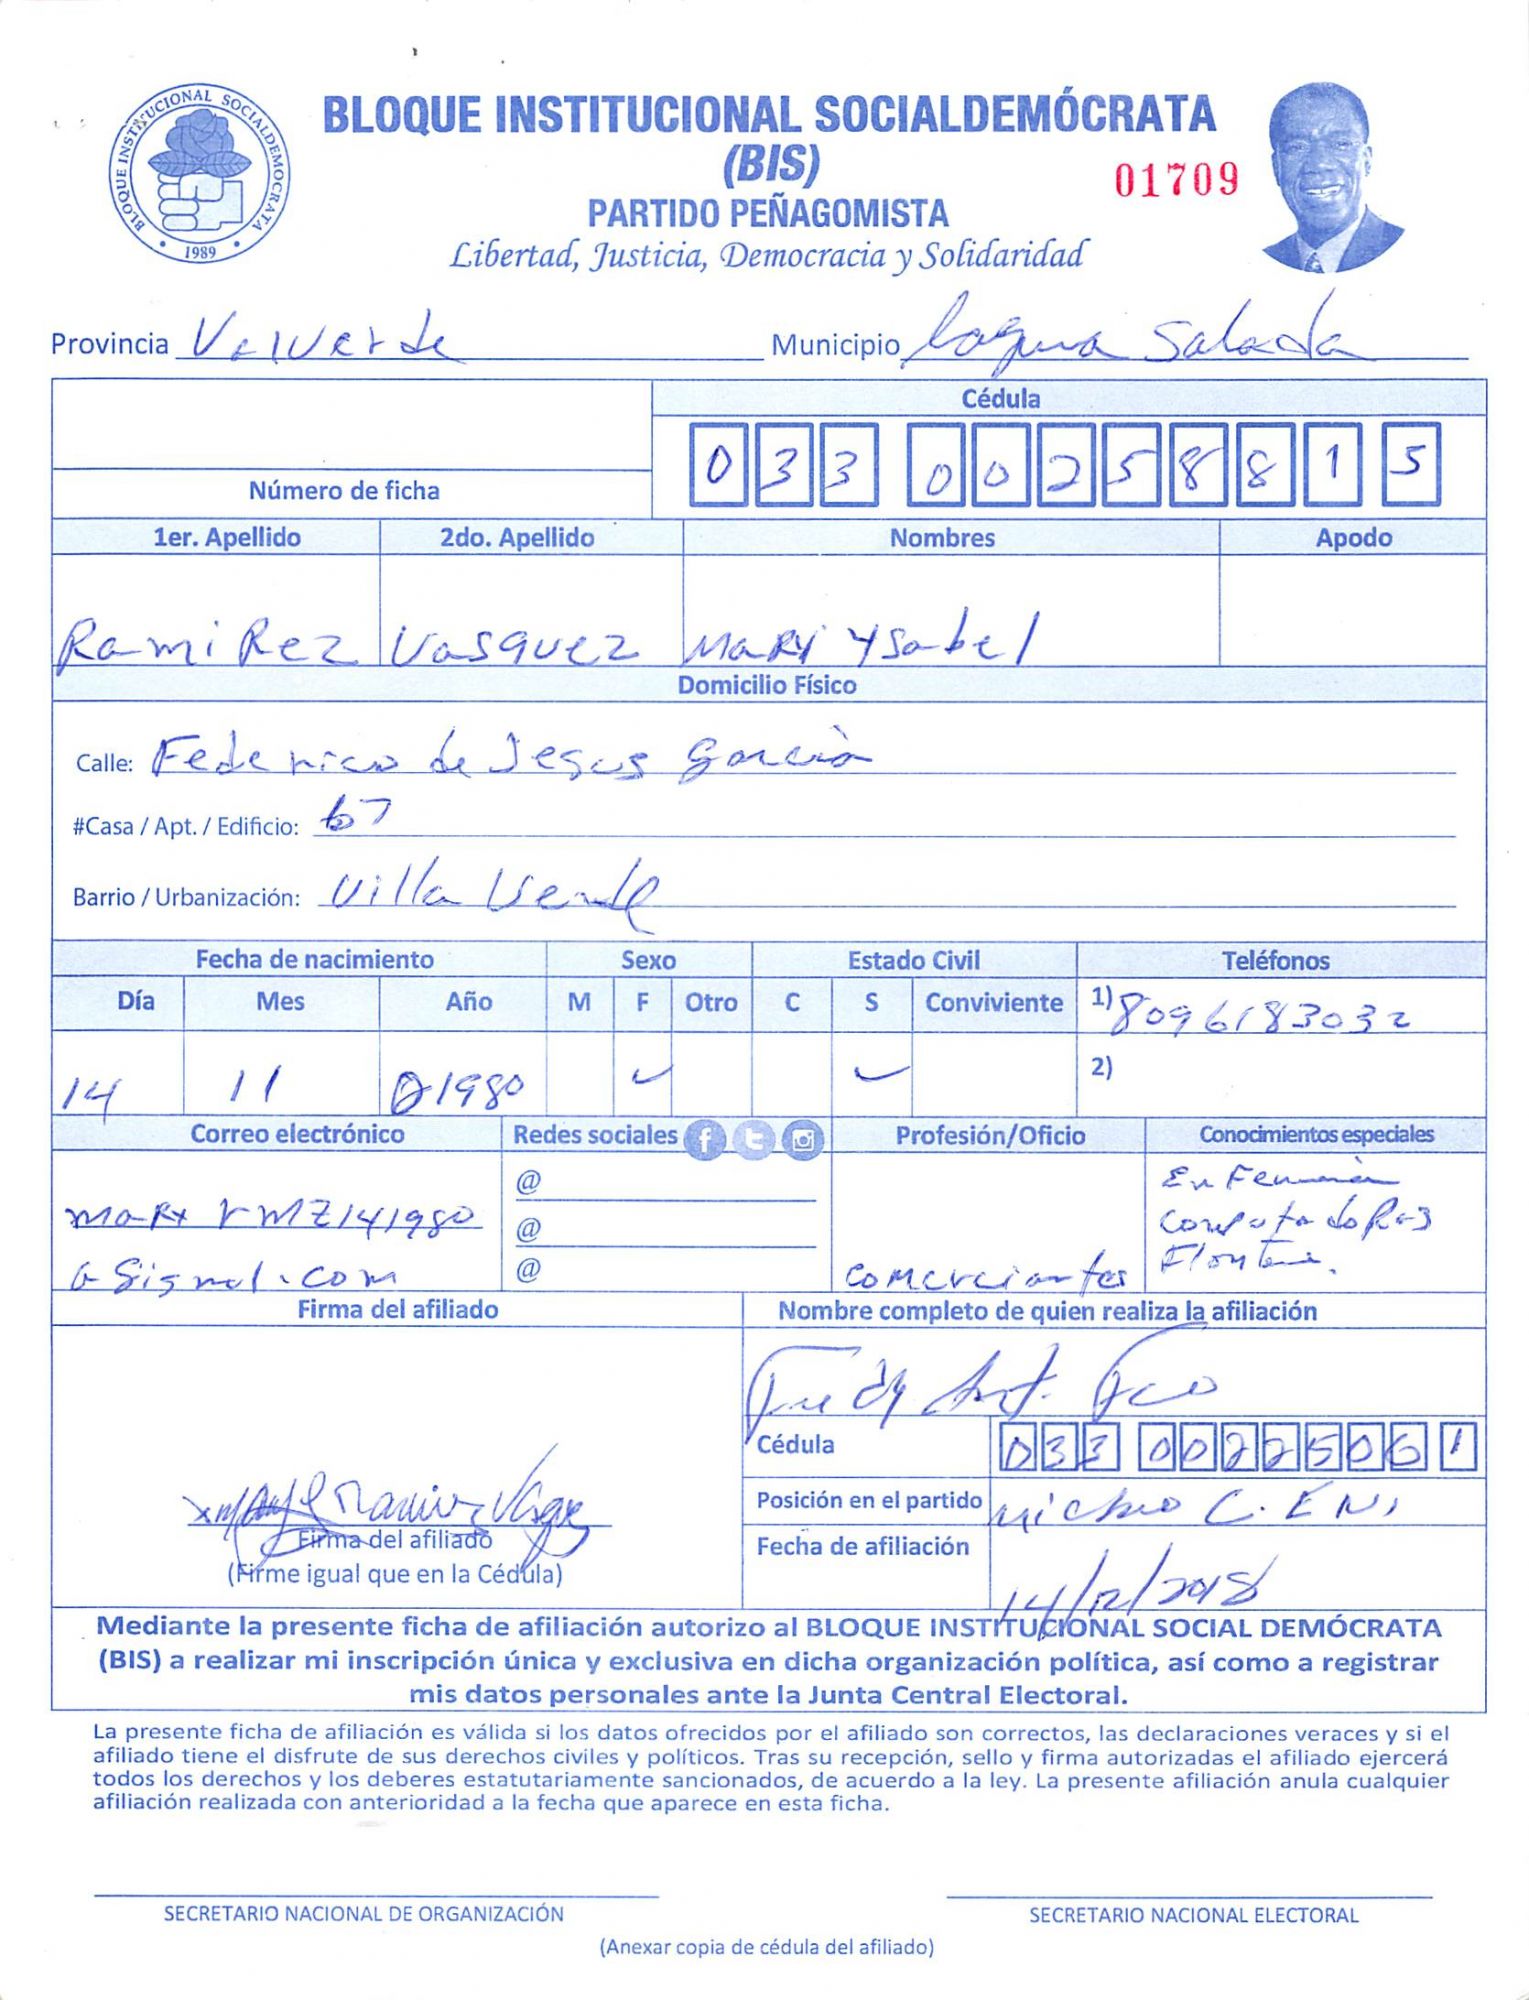 BLOQUE INSTITUCIONAL SOCIALDEMOCRATA
1989
BLOQUE INSTITUCIONAL SOCIALDEMÓCRATA
(BIS)
01709
PARTIDO PEÑAGOMISTA
Libertad, Justicia, Democracia y Solidaridad
Provincia Valverde Municipio laguna Salada
Cédula
033 0025881 5
Número de ficha
1er. Apellido 2do. Apellido Nombres Apodo
RamiRez Vasquez MaRy Ysabel
Domicilio Físico
Calle: Federico de Jesus García
#Casa / Apt. / Edificio: 67
Barrio / Urbanización: Villa Verde
Fecha de nacimiento Sexo Estado Civil Teléfonos
Día Mes Año M F Otro C S Conviviente 1) 8096183032
14 11 1980 2)
Correo electrónico Redes sociales Profesión/Oficio Conocimientos especiales
@
@
@
comerciantes
Firma del afiliado Nombre completo de quien realiza la afiliación
Cédula 033 0022506 1
Posición en el partido
Firma del afiliado
(Firme igual que en la Cédula)
Fecha de afiliación 14/12/2018
Mediante la presente ficha de afiliación autorizo al BLOQUE INSTITUCIONAL SOCIAL DEMÓCRATA
(BIS) a realizar mi inscripción única y exclusiva en dicha organización política, así como a registrar
mis datos personales ante la Junta Central Electoral.
La presente ficha de afiliación es válida si los datos ofrecidos por el afiliado son correctos, las declaraciones veraces y si el
afiliado tiene el disfrute de sus derechos civiles y políticos. Tras su recepción, sello y firma autorizadas el afiliado ejercerá
todos los derechos y los deberes estatutariamente sancionados, de acuerdo a la ley. La presente afiliación anula cualquier
afiliación realizada con anterioridad a la fecha que aparece en esta ficha.
SECRETARIO NACIONAL DE ORGANIZACIÓN SECRETARIO NACIONAL ELECTORAL
(Anexar copia de cédula del afiliado)